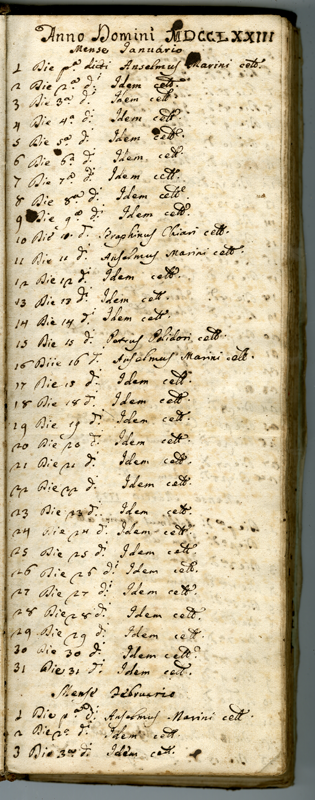 Anno Domini MDCCLXXIII
Mense Januario
1 Die pa dicti Anselmus Marini cett.
2 Die 2a di Idem cett.
3 Die 3a di Idem cett.
4 Die 4a di Idem cett.
5 Die 5a di Idem cett.
6 Die 6a di Idem cett.
7 Die 7a di Idem cett.
8 Die 8a di Idem cett.
9 Die 9a di Idem cett.
10 Die 10 di Seraphinus Chiari cett.
11 Die 11 di Anselmus Marini cett.
12 Die 12 di Idem cett.
13 Die 13 di Idem cett.
14 Die 14 di Idem cett.
15 Die 15 di Petrus Polidori cett.
16 Diie 16 di Anselmus Marini cett.
17 Die 17 di Idem cett.
18 Die 18 di Idem cett.
19 Die 19 di Idem cett.
20 Die 20 di Idem cett.
21 Die 21 di Idem cett.
22 Die 22 di Idem cett.
23 Die 23 di Idem cett.
24 Die 24 di Idem cett.
25 Die 25 di Idem cett.
26 Die 26 di Idem cett.
27 Die 27 di Idem cett.
28 Die 28 di Idem cett.
29 Die 29 di Idem cett.
30 Die 30 di Idem cett.
31 Die 31 di Idem cett.
Mense Februario
1 Die pa di Anselmus Marini cett.
2 Die 2a di Idem cett.
3 Die 3a di Idem cett.